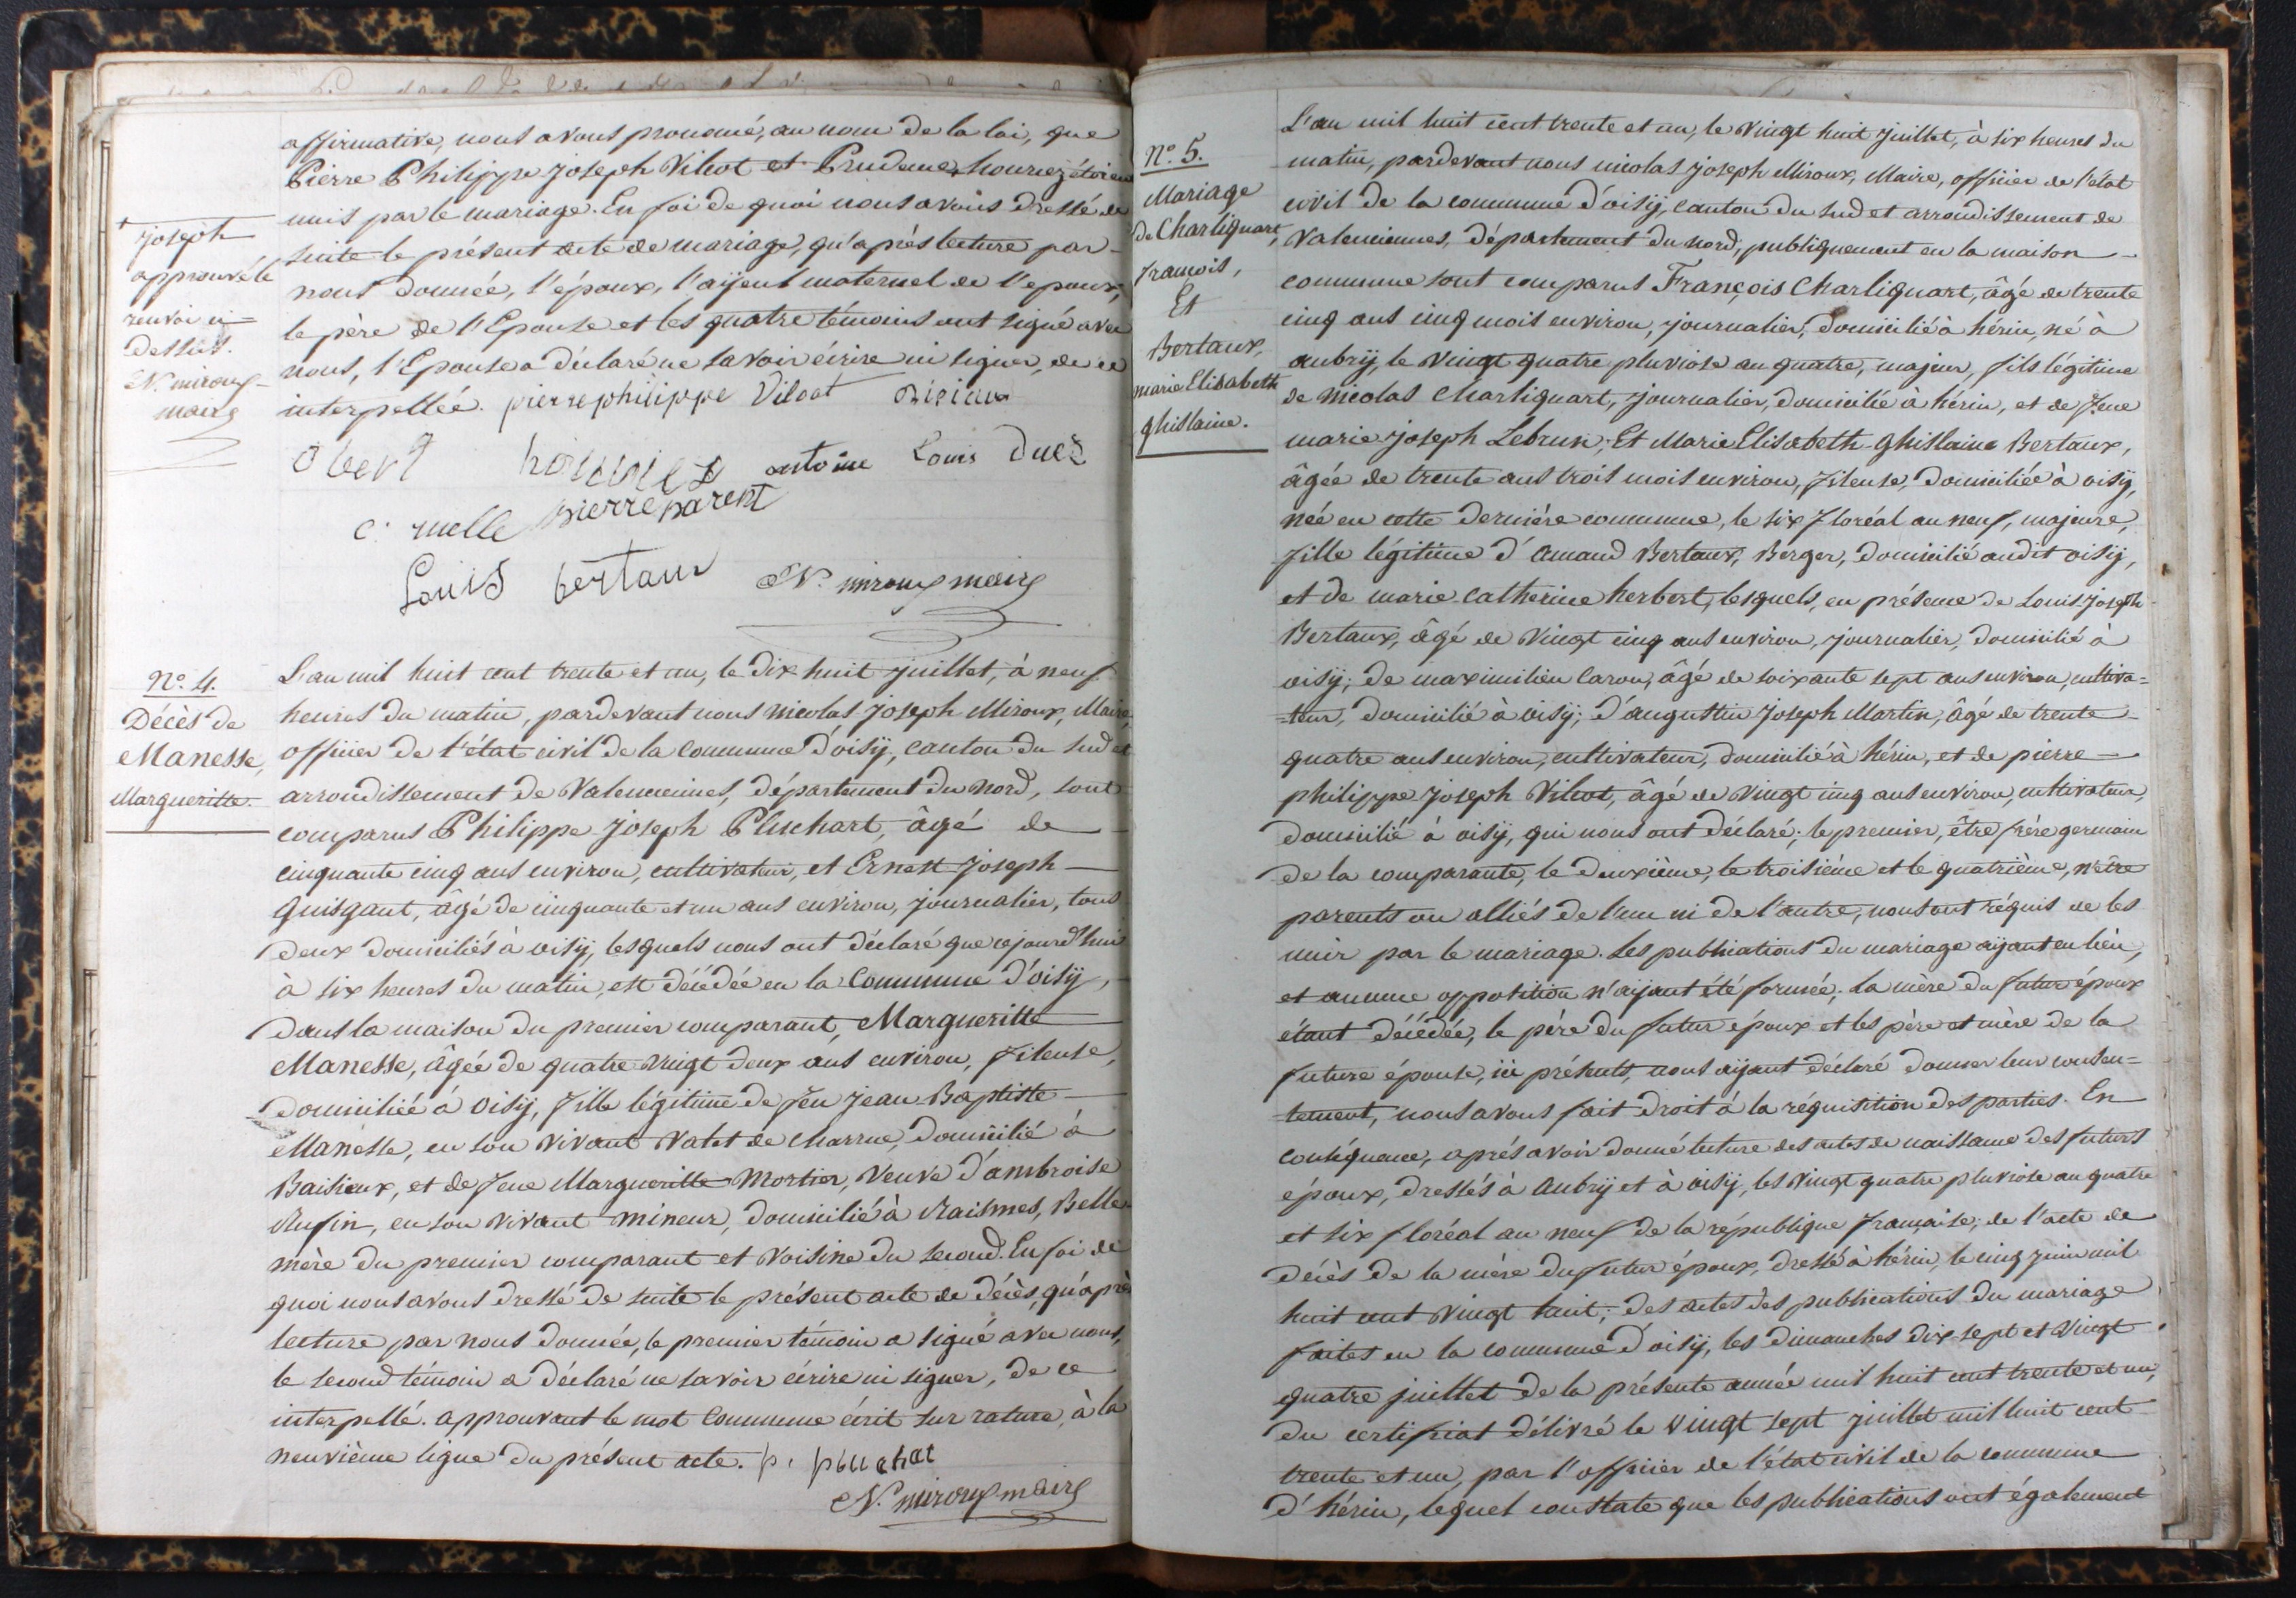 affirmative, nous avons prononcé, au nom de la loi, que
Pierre Philippe Joseph Vilcot et Prudence + houriez étoient
unis par le mariage. En foi de quoi nous avons dressé de
suite le présent acte de mariage, qu'après lecture par
nous donnée, l'époux, l'ayeul maternel de l'époux,
le père de l'Epouse et les quatre témoins ont signé avec
nous, l'Epouse a déclaré ne savoir écrire ni signer, de ce
interpellée. pierre philippe Vilcot
+ Joseph
approuvé le
renvoi ci=
dessus.
N. miroux
maire
obert houriez antoine Louis Duez
C. ruelle pierre parent
Louis bertaux N. miroux maire
N.º 4.
Décès de
Manesse,
Margueritte.
L'an mil huit cent trente et un, le dix huit juillet, à neuf
heures du matin, pardevant nous Nicolas Joseph Miroux, Maire,
officier de l'état civil de la commune d'oisy, canton du sud et
arrondissement de Valenciennes, département du Nord, sont
comparus Philippe Joseph Pluchart, âgé de
cinquante cinq ans environ, cultivateur, et Ernest Joseph
Quisgaut, âgé de cinquante et un ans environ, journalier, tous
deux domiciliés à oisy, lesquels nous ont déclaré que cejourd'hui
à six heures du matin, est décédée en la Commune d'oisy,
dans la maison du premier comparant, Margueritte
Manesse, âgée de quatre vingt deux ans environ, fileuse,
domiciliée à oisy, fille légitime de feu Jean Baptiste
Manesse, en son vivant valet de charrue, domicilié à
Baisieux, et de feue Margueritte Mortier, veuve d'ambroise
Rufin, en son vivant mineur, domicilié à Raismes, Belle
mère du premier comparant et voisine du second. En foi de
quoi nous avons dressé de suite le présent acte de décès, qu'après
lecture par nous donnée, le premier témoin a signé avec nous,
le second témoin a déclaré ne savoir écrire ni signer, de ce
interpellé. approuvant le mot Commune écrit sur rature, à la
neuvième ligne du présent acte. p. pluchat
N. miroux maire
N.º 5.
Mariage
de Charliquart,
françois,
Et
Bertaux,
marie Elisabeth
ghislaine.
L'an mil huit cent trente et un, le vingt huit juillet, à six heures du
matin, pardevant nous nicolas Joseph Miroux, Maire, officier de l'état
civil de la commune d'oisy, canton du sud et arrondissement de
Valenciennes, département du nord, publiquement en la maison
commune sont comparus François Charliquart, âgé de trente
cinq ans cinq mois environ, journalier, domicilié à hérin, né à
aubry, le vingt quatre pluviose an quatre, majeur, fils légitime
de Nicolas Charliquart, journalier, domicilié à hérin, et de feue
marie Joseph Lebrun; Et Marie Elisabeth Ghislaine Bertaux,
âgée de trente ans trois mois environ, fileuse, domiciliée à oisy,
née en cette dernière commune, le six floréal an neuf, majeure,
fille légitime d'amand Bertaux, Berger, domicilié audit oisy,
et de marie Catherine herbert; lesquels, en présence de Louis Joseph
Bertaux, âgé de vingt cinq ans environ, journalier, domicilié à
oisy; de maximilien Carou, âgé de soixante sept ans environ, cultiva=
=teur, domicilié à oisy; d'augustin Joseph Martin, âgé de trente
quatre ans environ, cultivateur, domicilié à hérin, et de pierre
philippe Joseph Vilcot, âgé de vingt cinq ans environ, cultivateur,
domicilié à oisy, qui nous ont déclaré; le premier, être frère germain
de la comparante, le deuxième, le troisième et le quatrième, n'être
parents ou alliés de l'un ni de l'autre, nous ont réquis de les
unir par le mariage. Les publications du mariage ayant eu lieu,
et aucune opposition n'ayant été formée; la mère du futur époux
étant décédée, le père du futur époux et les père et mère de la
future épouse, ici présents, nous ayant déclaré donner leur consen=
tement, nous avons fait droit à la réquisition des parties. En
conséquence, après avoir donné lecture des actes de naissance des futurs
époux, dressés à Aubry et à oisy, les vingt quatre pluviose an quatre
et six floréal an neuf de la république française; de l'acte de
décès de la mère du futur époux, dressé à hérin, le cinq juin mil
huit cent vingt huit; des actes des publications du mariage
faites en la commune d'oisy, les dimanches dix-sept et vingt
quatre juillet de la présente année mil huit cent trente et un,
du certificat délivré le vingt sept juillet mil huit cent
trente et un, par l'officier de l'état civil de la commune
d'hérin, lequel constate que les publications ont également